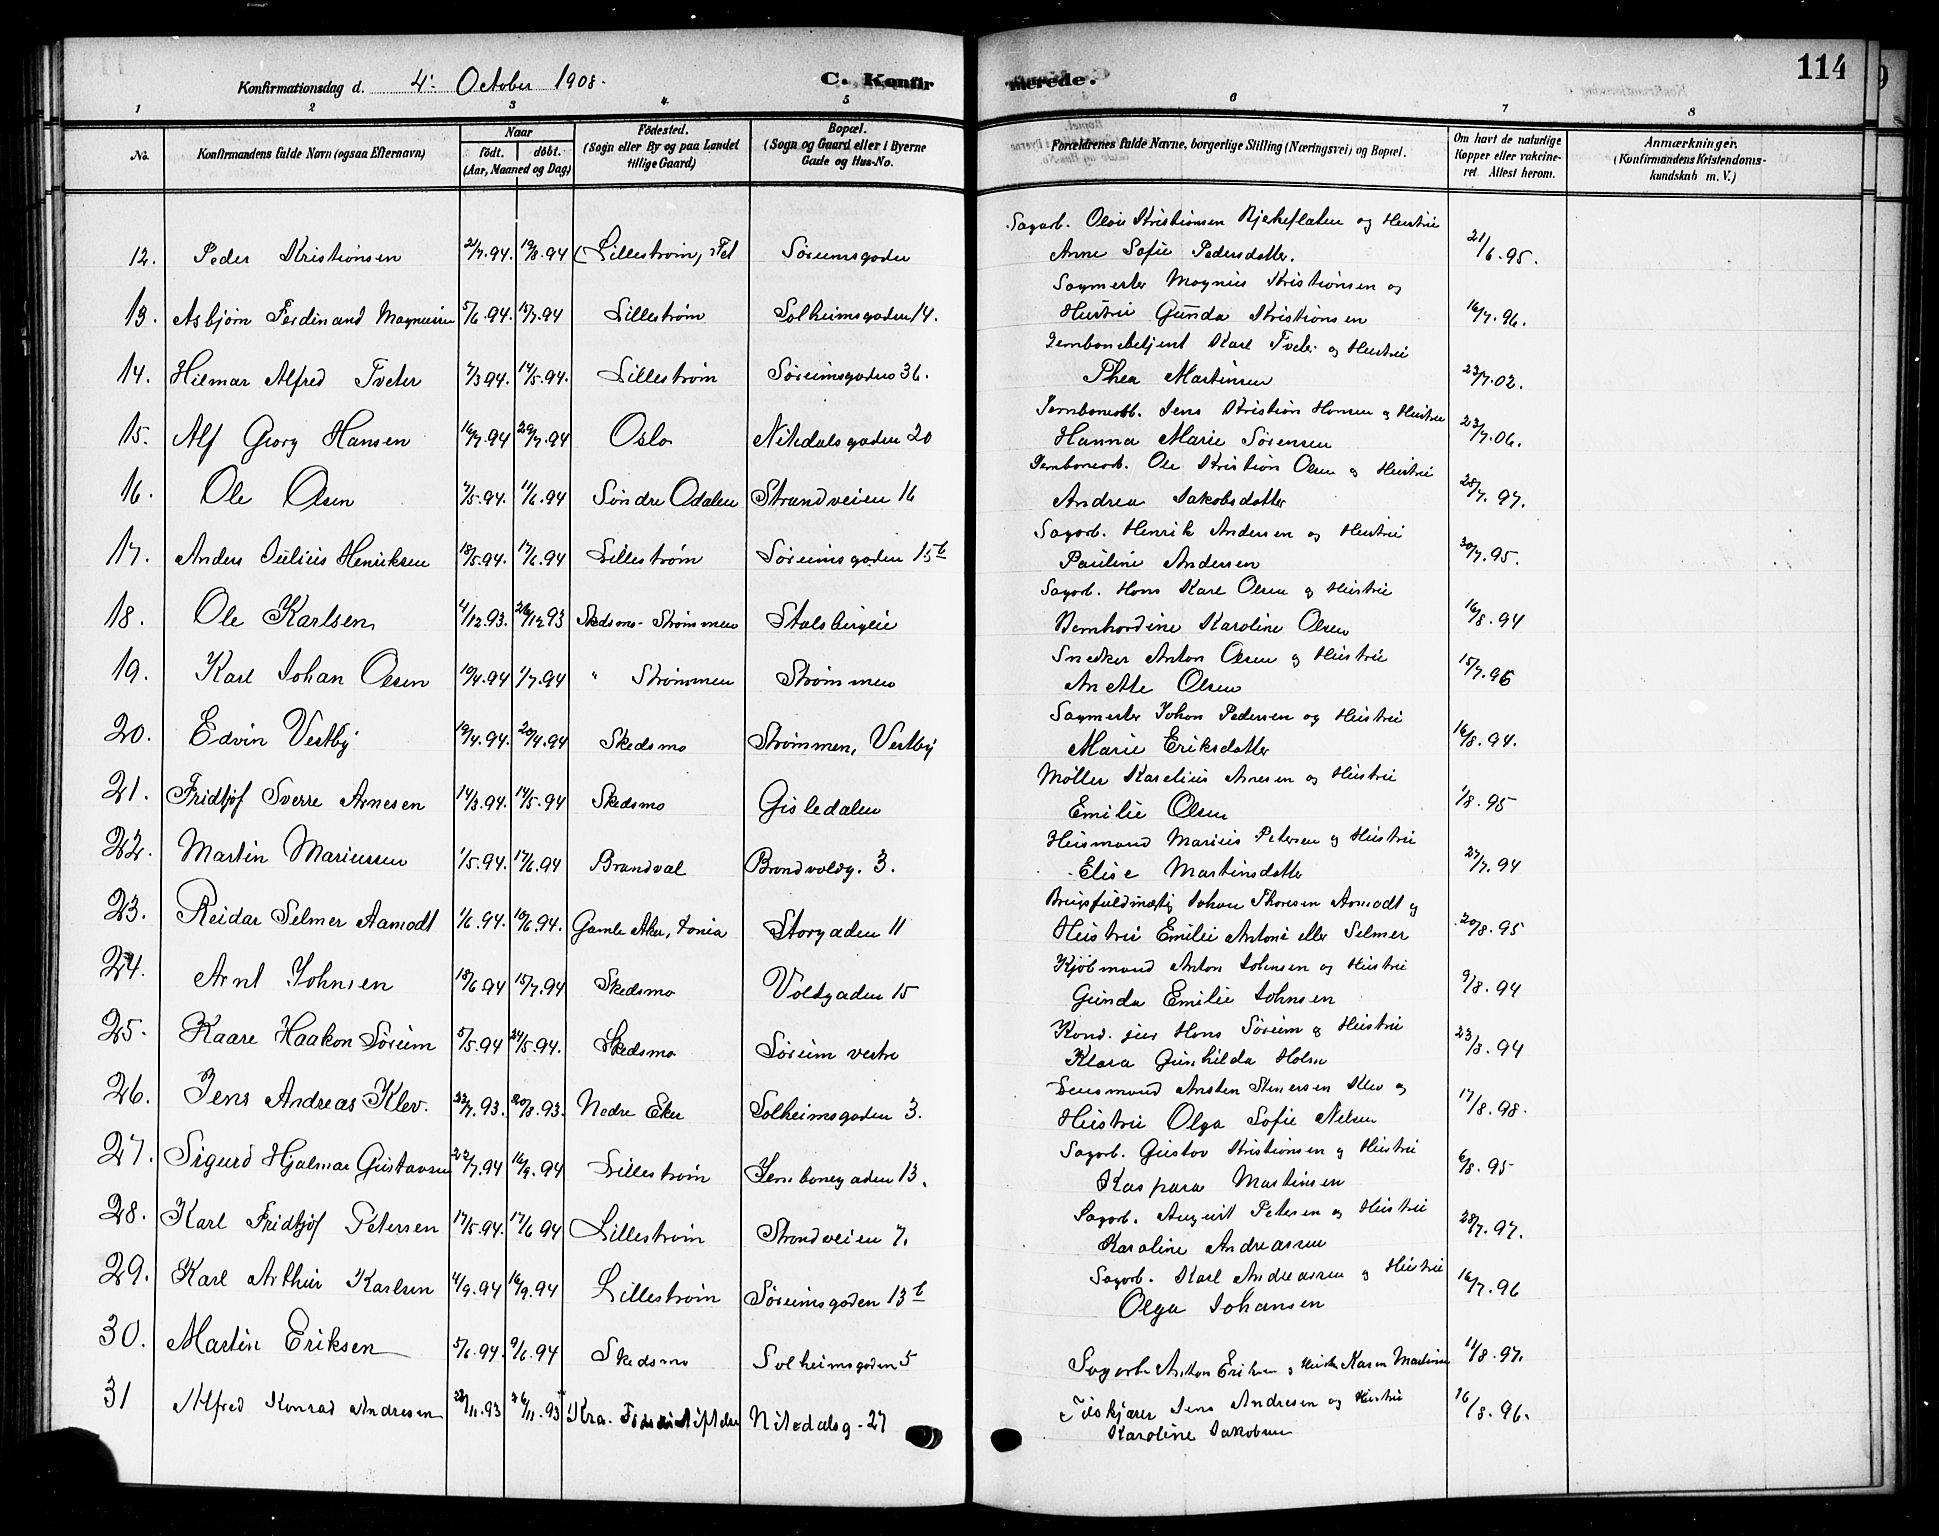 Konfirmationsdag d. 4. October 1908. C. Konfirmerede. 114
1 2 3 4 5 6 7 8
No. Konfirmandens fulde Navn (ogsaa Efternavn) Naar født. døbt. (Aar, Maaned og Dag) Fødested. (Sogn eller By og paa Landet tillige Gaard) Bopæl. (Sogn og Gaard eller i Byerne Gade og Hus-No. Forældrenes fulde Navne, borgerlige Stilling (Næringsvei) og Bopæl. Om havt de naturlige Kopper eller vakcineret. Attest herom. Anmærkninger. (Konfirmandens Kristendomskundskab m. V.)
12. Peder Kristiansen 21/7.94. 19/8.94 (Lillestrøm, Fet Sørumsgaden Sagarb. Olai Kristiansen og Hustru
Anne Sofie Pedersdatter. 21/6.95.
13. Asbjørn Ferdinand Magnussen 5/6.94. 15/7.94 Lillestrøm Solheimsgaden 14. Sagmester Magnus Kristiansen og
Hustru Gunda Kristiansen 16/7.96.
14. Hilmar Alfred Tveter 7/3.94. 14/5.94. Lillestrøm Sørumsgaden 36. Jernbanebetjent Karl Tveter og Hustru
Thea Martinsen 23/7.02.
15. Alf Georg Hansen 16/7.94 29/7.94 Oslo Nitedalsgaden 20 Jernbanearb. Jens Kristian Hansen og Hustru
Hanna Marie Sørensen 23/7.06.
16. Ole Olsen 7/5.94. 11/6.94 Søndre Odalen Strandveien 16 Jernbanearb. Ole Kristian Olsen og Hustru
Andrea Jakobsdatter 28/7.97.
17. Anders Julius Henriksen 18/5.94. 17/6.94 Lillestrøm Sørumsgaden 15b Sagarb. Henrik Andersen og Hustru
Pauline Andersen 30/7.95.
18. Ole Karlsen 4/12.93. 26/12.93 Skedsmo-Strømmen Stalsbergeie Sagarb. Hans Karl Olsen og Hustru
Bernhardine Karoline Olsen 16/8.94
19. Karl Johan Olsen 10/4.94 1/7.94 " Strømmen Strømmen Snedker Anton Olsen og Hustru
Anette Olsen 15/7.96
20. Edvin Vestby 19/4.94. 20/4.94 Skedsmo Strømmen, Vestby Sagmester Johan Pedersen og Hustru
Marie Eriksdatter 16/8.94.
21. Fridtjof Sverre Arnesen 14/3.94. 14/5.94 Skedsmo Gisledalen Møller Karelius Arnesen og Hustru
Emilie Olsen 1/8.95
22. Martin Mariussen 1/5.94. 17/6.94 Brandval Brandvoldg. 3. Husmand Marius Petersen og Hustru
Elise Martinsdatter 27/7.94
23. Reidar Selmer Aamodt 1/6.94. 10/6.94. Gamle Aker, Kr.ania Storgaden 11 Brugsfuldmægtig Johan Thoresen Aamodt og
Hustru Emilie Antonie eller Selmer 20/8.95
24. Arnt Johnsen 18/6.94 15/7.94 Skedsmo Voldgaden 15 Kjøbmand Anton Johnsen og Hustru
Gunda Emilie Johnsen 9/8.94
25. Kaare Haakon Sørum 5/5.94 24/5.94. Skedsmo Sørum vestre Kand. jur Hans Sørum og Hustru
Klara Gunhilda Holm 23/8.94
26. Jens Andreas Klev. 22/7.93. 20/8.93. Nedre Eker Solheimsgaden 3. Lensmand Ansten Stenersen Klev og
Hustru Olga Sofie Nilsen 17/8.98.
27. Sigurd Hjalmar Gustavsen 22/7.94 16/9.94 Lillestrøm Jernbanegaden 13. Sagarb. Gustav Kristiansen og Hustru
Kaspara Martinsen 6/8.95
28. Karl Fridtjof Petersen 17/5.94. 17/6.94 Lillestrøm Strandveien 7. Sagarb. August Petersen og Hustru
Karoline Andreassen 28/7.97.
29. Karl Arthur Karlsen 4/9.94 16/9.94 Lillestrøm Sørumsgaden 13b Sagarb. Karl Andreassen og Hustru
Olga Johansen 16/7.96
30. Martin Eriksen 5/6.94. 9/6.94 Skedsmo Solheimsgaden 5 Sagarb. Anton Eriksen og Hustru Karen Martinsen 11/8.97.
31 Alfred Konrad Andresen 28/11.93 26/11.93 Kra. Nitedalsg-27 Jens Andresen og Hustru
Karoline Jakobsen 16/8.96.